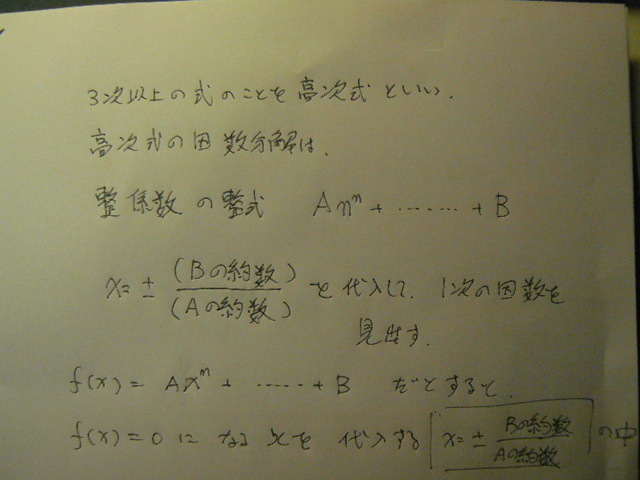 3次以上の式のことを高次式といい.
高次式の因数分解は、
整係数の整式 Ax^n + ・・・・・・ + B
x = ± (Bの約数)/(Aの約数) を代入して. 1次の因数を
見出す.
f(x) = Ax^n + ・・・・・ + B だとすると.
f(x) = 0 になるxを代入する x = ± Bの約数/Aの約数 の中